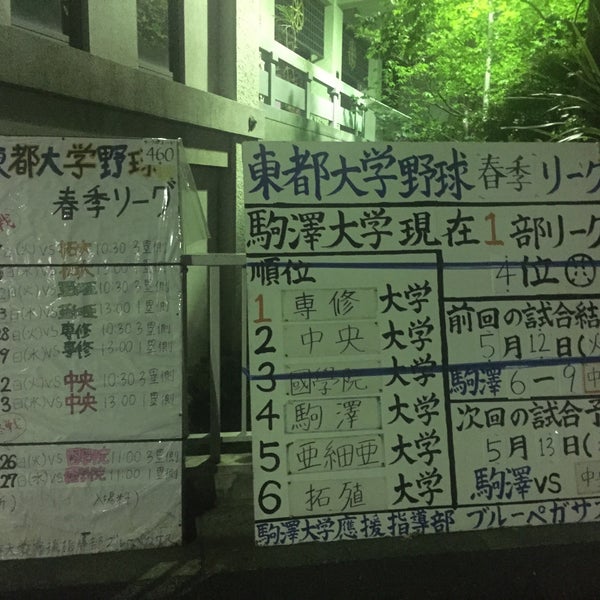 東都大学野球
460
春季リーグ
戦
(火) VS 拓大 10:30 3塁側
VS 拓大 13:00 1塁側
日(火) VS 亜細亜 10:30 3塁側
3日(水) VS 亜細亜 13:00 1塁側
28日(火) VS 専修 10:30 3塁側
9日(水) VS 専修 13:00 1塁側
2日(火) VS 中央 10:30 3塁側
3日(水) VS 中央 13:00 1塁側
26(火) VS 國學院 11:00 3塁側
27(水) VS 國學院 11:00 1塁側
東都大学野球 春季 リーグ
駒澤大学現在1部リーグ
4位
順位
1 専修 大学
2 中央 大学
3 國學院 大学
4 駒澤 大学
5 亜細亜 大学
6 拓殖 大学
前回の試合結
5月12日(火
駒澤 6-9 中
次回の試合予
5月13日(
駒澤 VS 中
駒澤大学應援指導部 ブルーペガサス